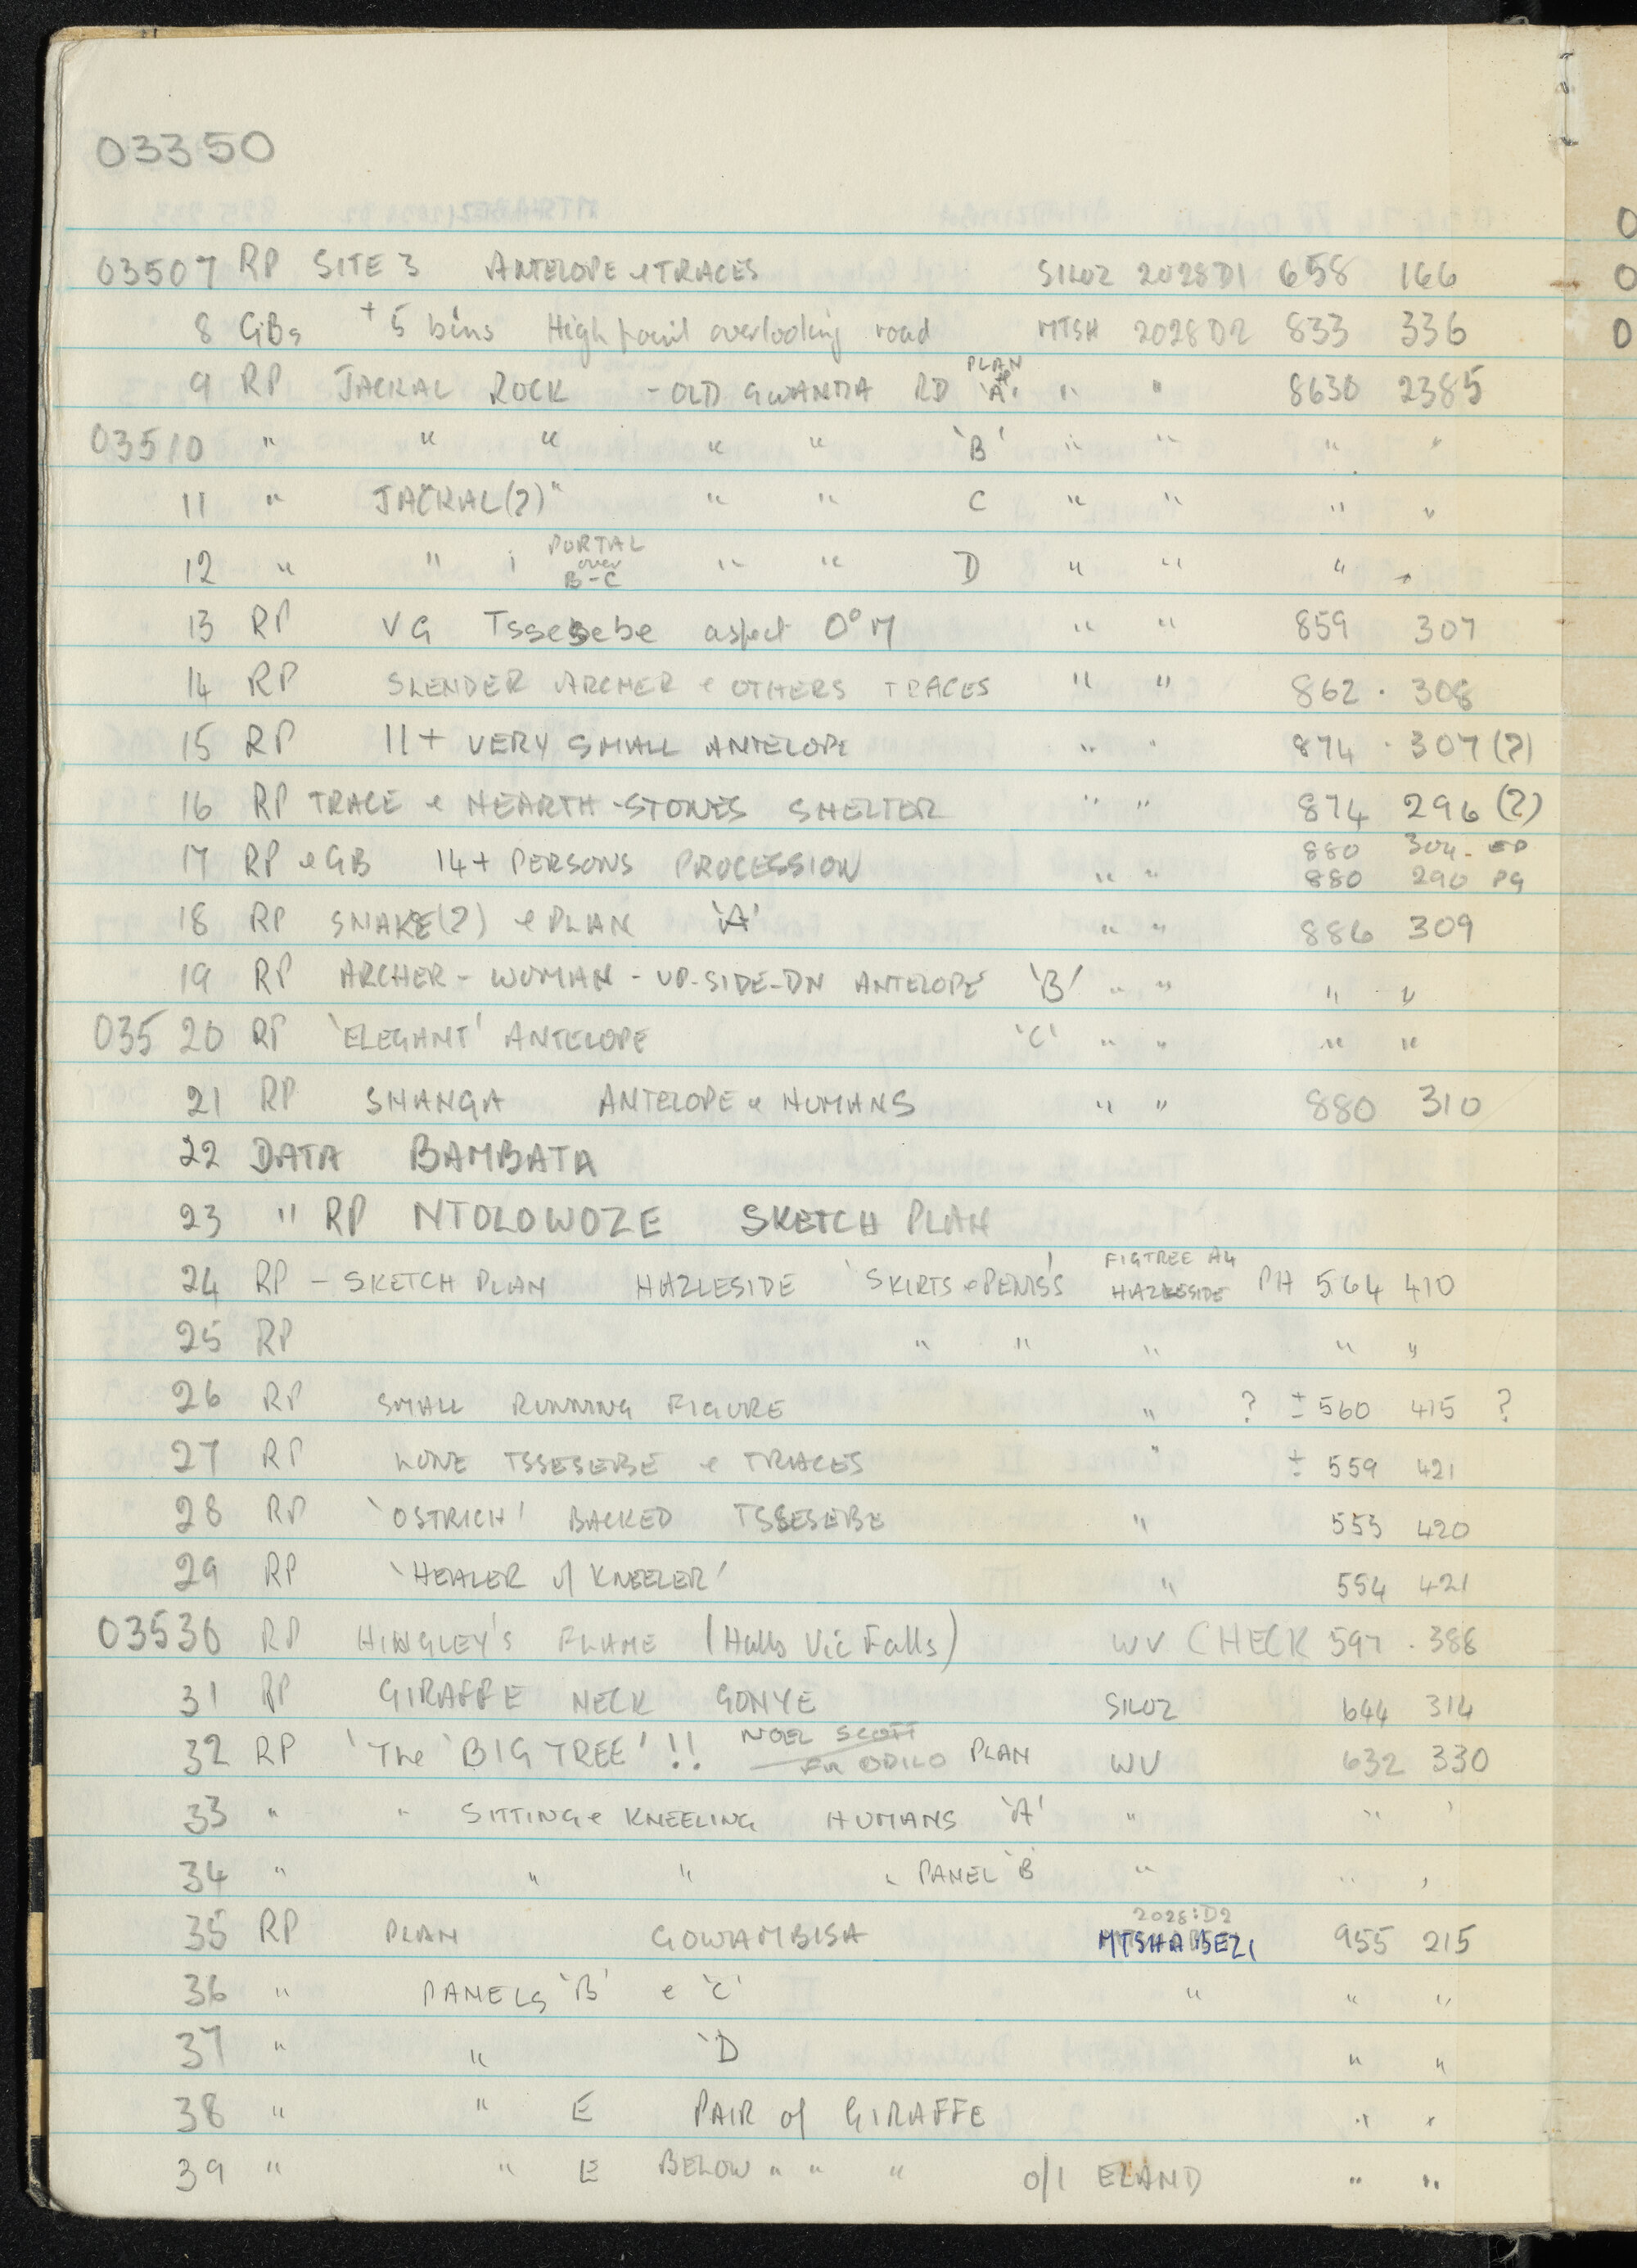 03350
03507 RP SITE 3 ANTELOPE & TRACES SILOZ 2028 D1 658 166
8 GBs + 5 bins High point overlooking road MTSH 2028 D2 833 336
9 RP JACKAL ROCK - OLD GWANDA RD PLAN 'A' " " 8630 2385
03510 " " " " " 'B' " " " "
11 " JACKAL (?) " " " C " " " "
12 " " " PORTAL over B-C " " D " " " "
13 RP VG Tssesebe aspect 0° M " " 859 307
14 RP SLENDER ARCHER & OTHERS TRACES " " 862 · 308
15 RP 11+ VERY SMALL ANTELOPE " " 874 · 307 (?)
16 RP TRACE & HEARTH-STONES SHELTER " " 874 296 (?)
17 RP & GB 14+ PERSONS PROCESSION " " 880 304 - ED
880 290 PG
18 RP SNAKE (?) & PLAN 'A' " " 886 309
19 RP ARCHER - WOMAN - UP-SIDE-DN ANTELOPE 'B' " " " "
03520 RP 'ELEGANT' ANTELOPE 'C' " " " "
21 RP SHANGA ANTELOPE & HUMANS " " 880 310
22 DATA BAMBATA
23 " RP NTOLOWOZE SKETCH PLAN
24 RP - SKETCH PLAN HAZLESIDE 'SKIRTS & PENIS'S' FIGTREE A4 HAZLESIDE PH 564 410
25 RP " " " " "
26 RP SMALL RUNNING FIGURE " ? ± 560 415 ?
27 RP LONE TSSESEBE & TRACES " ± 559 421
28 RP 'OSTRICH' BACKED TSSESEBE " 553 420
29 RP 'HEALER of KNEELER' " 554 421
03530 RP HINGLEY'S FLAME (Halls Vic Falls) WV CHECK 597 · 388
31 RP GIRAFFE NECK GONYE SILOZ 644 314
32 RP 'The 'BIG TREE' !! NOEL SCOTT Fr ODILO PLAN WV 632 330
33 " " SITTING & KNEELING HUMANS 'A' " " "
34 " " " " PANEL 'B' " " "
35 RP PLAN GOWAMBISA 2028:D2 MTSHABEZI 955 215
36 " PANELS 'B' & 'C' " " "
37 " " 'D " "
38 " " E PAIR of GIRAFFE " "
39 " " E BELOW " " " o/l ELAND " "